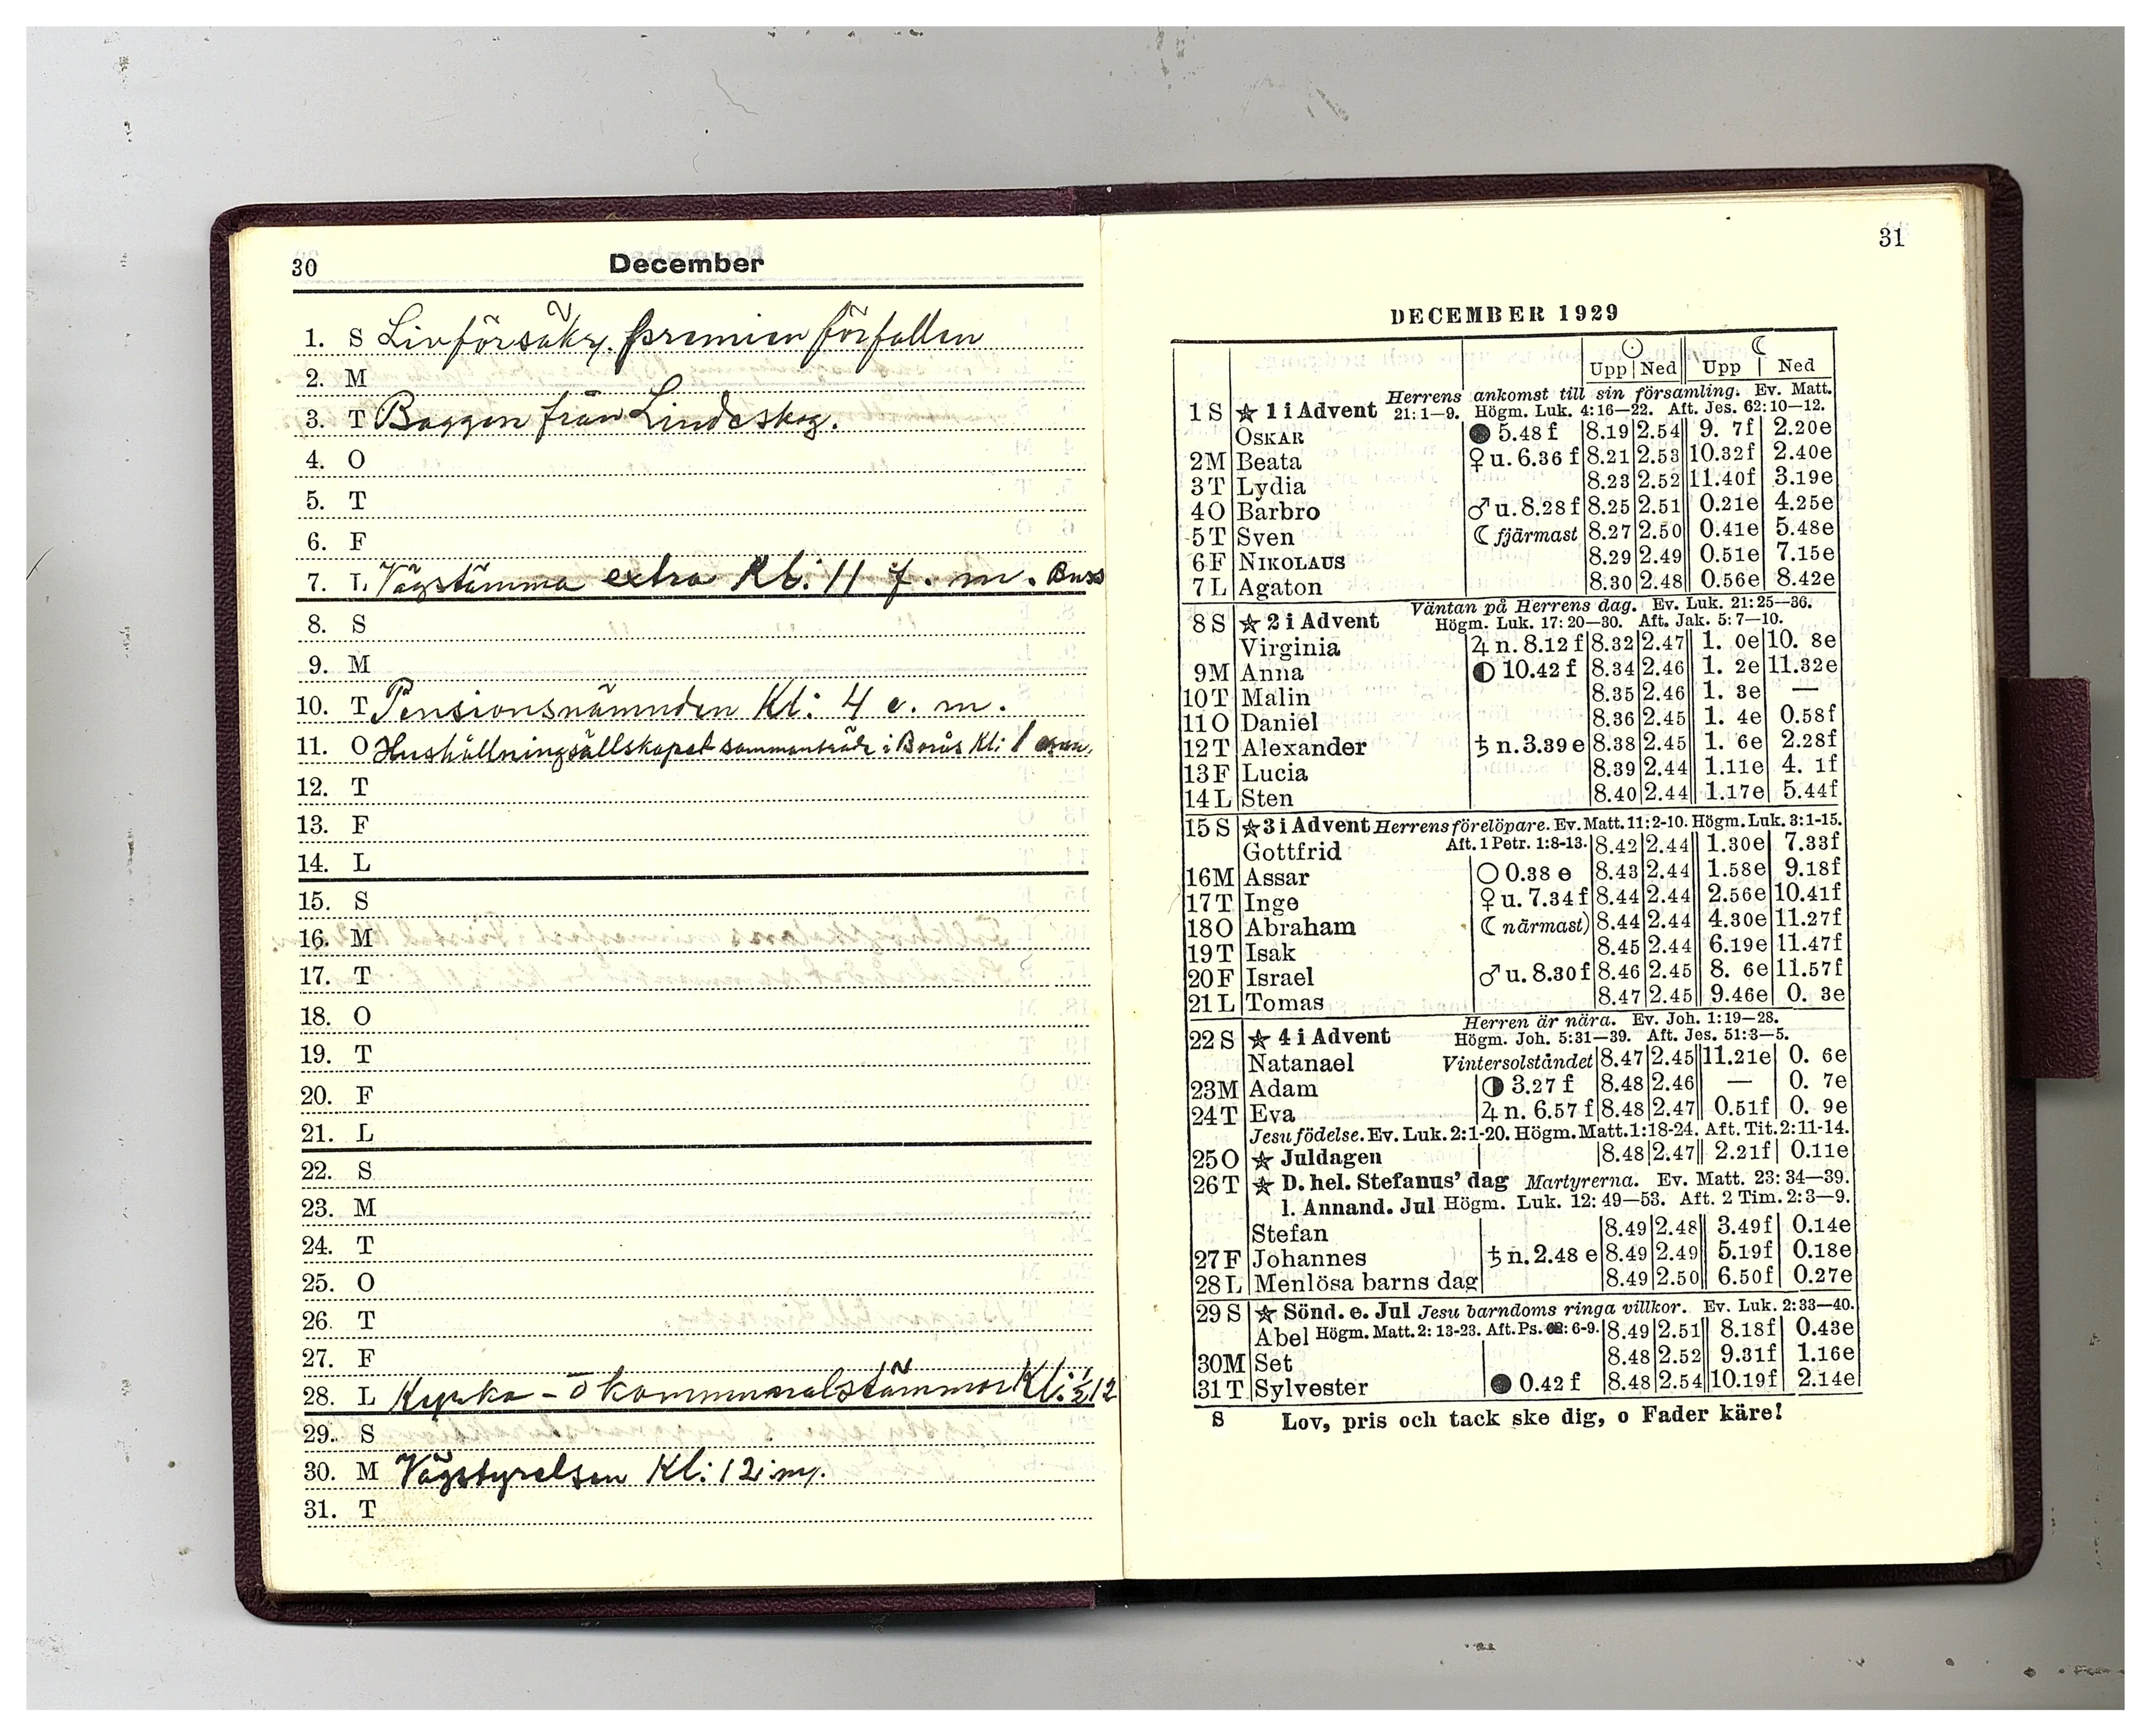 30
December
1. S Livförsäkr. premien förfallen
2. M
3. T Baggen från Lindeskog.
4. O
5. T
6. F
7. L Vägstämma extra Kl: 11 f. m. Buss
8. S
9. M
10. T Pensionsnämnden Kl: 4 e. m.
11. O Hushållningsällskapet sammanträde i Borås Kl: 1
12. T
13. F
14. L
15. S
16. M
17. T
18. O
19. T
20. F
21. L
22. S
23. M
24. T
25. O
26. T
27. F
28. L Kyrko - o kommunalstämmor Kl: ½12
29. S
30. M Vägstyrelsen Kl: 12
31. T
31
DECEMBER 1929
☉ ☾
Upp Ned Upp Ned
Herrens ankomst till sin församling. Ev. Matt.
1 S ☆ 1 i Advent 21: 1—9. Högm. Luk. 4: 16—22. Aft. Jes. 62: 10—12.
OSKAR ● 5.48 f 8.19 2.54 9. 7f 2.20e
2 M Beata ♀ u. 6.36 f 8.21 2.53 10.32f 2.40e
3 T Lydia 8.23 2.52 11.40f 3.19e
4 O Barbro ♂ u. 8.28 f 8.25 2.51 0.21e 4.25e
5 T Sven ☾ fjärmast 8.27 2.50 0.41e 5.48e
6 F NIKOLAUS 8.29 2.49 0.51e 7.15e
7 L Agaton 8.30 2.48 0.56e 8.42e
Väntan på Herrens dag. Ev. Luk. 21: 25—36.
8 S ☆ 2 i Advent Högm. Luk. 17: 20—30. Aft. Jak. 5: 7—10.
Virginia ♃ n. 8.12 f 8.32 2.47 1. 0e 10. 8e
9 M Anna ◐ 10.42 f 8.34 2.46 1. 2e 11.32e
10 T Malin 8.35 2.46 1. 3e —
11 O Daniel 8.36 2.45 1. 4e 0.58f
12 T Alexander ♄ n. 3.39 e 8.38 2.45 1. 6e 2.28f
13 F Lucia 8.39 2.44 1.11e 4. 1f
14 L Sten 8.40 2.44 1.17e 5.44f
15 S ☆ 3 i Advent Herrens förelöpare. Ev. Matt. 11: 2-10. Högm. Luk. 3: 1-15.
Gottfrid Aft. 1 Petr. 1:8-13. 8.42 2.44 1.30e 7.33f
16 M Assar ○ 0.38 e 8.43 2.44 1.58e 9.18f
17 T Inge ♀ u. 7.34 f 8.44 2.44 2.56e 10.41f
18 O Abraham ☾ närmast) 8.44 2.44 4.30e 11.27f
19 T Isak 8.45 2.44 6.19e 11.47f
20 F Israel ♂ u. 8.30 f 8.46 2.45 8. 6e 11.57f
21 L Tomas 8.47 2.45 9.46e 0. 3e
Herren är nära. Ev. Joh. 1:19—28.
22 S ☆ 4 i Advent Högm. Joh. 5:31—39. Aft. Jes. 51:3—5.
Natanael Vintersolståndet 8.47 2.45 11.21e 0. 6e
23 M Adam ◑ 3.27 f 8.48 2.46 — 0. 7e
24 T Eva ♃ n. 6.57 f 8.48 2.47 0.51f 0. 9e
Jesu födelse. Ev. Luk. 2:1-20. Högm. Matt. 1:18-24. Aft. Tit. 2: 11-14.
25 O ☆ Juldagen 8.48 2.47 2.21f 0.11e
26 T ☆ D. hel. Stefanus' dag Martyrerna. Ev. Matt. 23: 34—39.
l. Annand. Jul Högm. Luk. 12: 49—53. Aft. 2 Tim. 2: 3—9.
Stefan 8.49 2.48 3.49f 0.14e
27 F Johannes ♄ n. 2.48 e 8.49 2.49 5.19f 0.18e
28 L Menlösa barns dag 8.49 2.50 6.50f 0.27e
29 S ☆ Sönd. e. Jul Jesu barndoms ringa villkor. Ev. Luk. 2: 33—40.
Abel Högm. Matt. 2: 13-23. Aft. Ps. : 6-9. 8.49 2.51 8.18f 0.43e
30 M Set 8.48 2.52 9.31f 1.16e
31 T Sylvester ● 0.42 f 8.48 2.54 10.19f 2.14e
S Lov, pris och tack ske dig, o Fader käre!